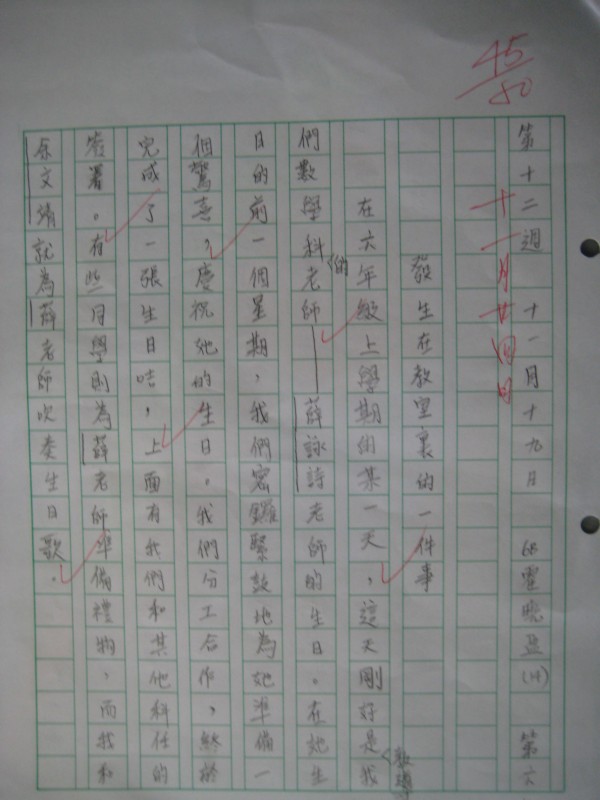 45/50
第十二週 十一月十九日 6B 霍曉盈(14) 第六
十一月廿四日
發生在教室裏的一件事
在六年級上學期的某一天，這天剛好是我
教導
們數學科老師——薛詠詩老師的生日。在她生
的
日的前一個星期，我們密鑼緊鼓地為她準備一
個驚喜，慶祝她的生日。我們分工合作，終於
完成了一張生日咭，上面有我們和其他科任的
簽署。有些同學則為薛老師準備禮物，而我和
余文靖就為薛老師吹奏生日歌。